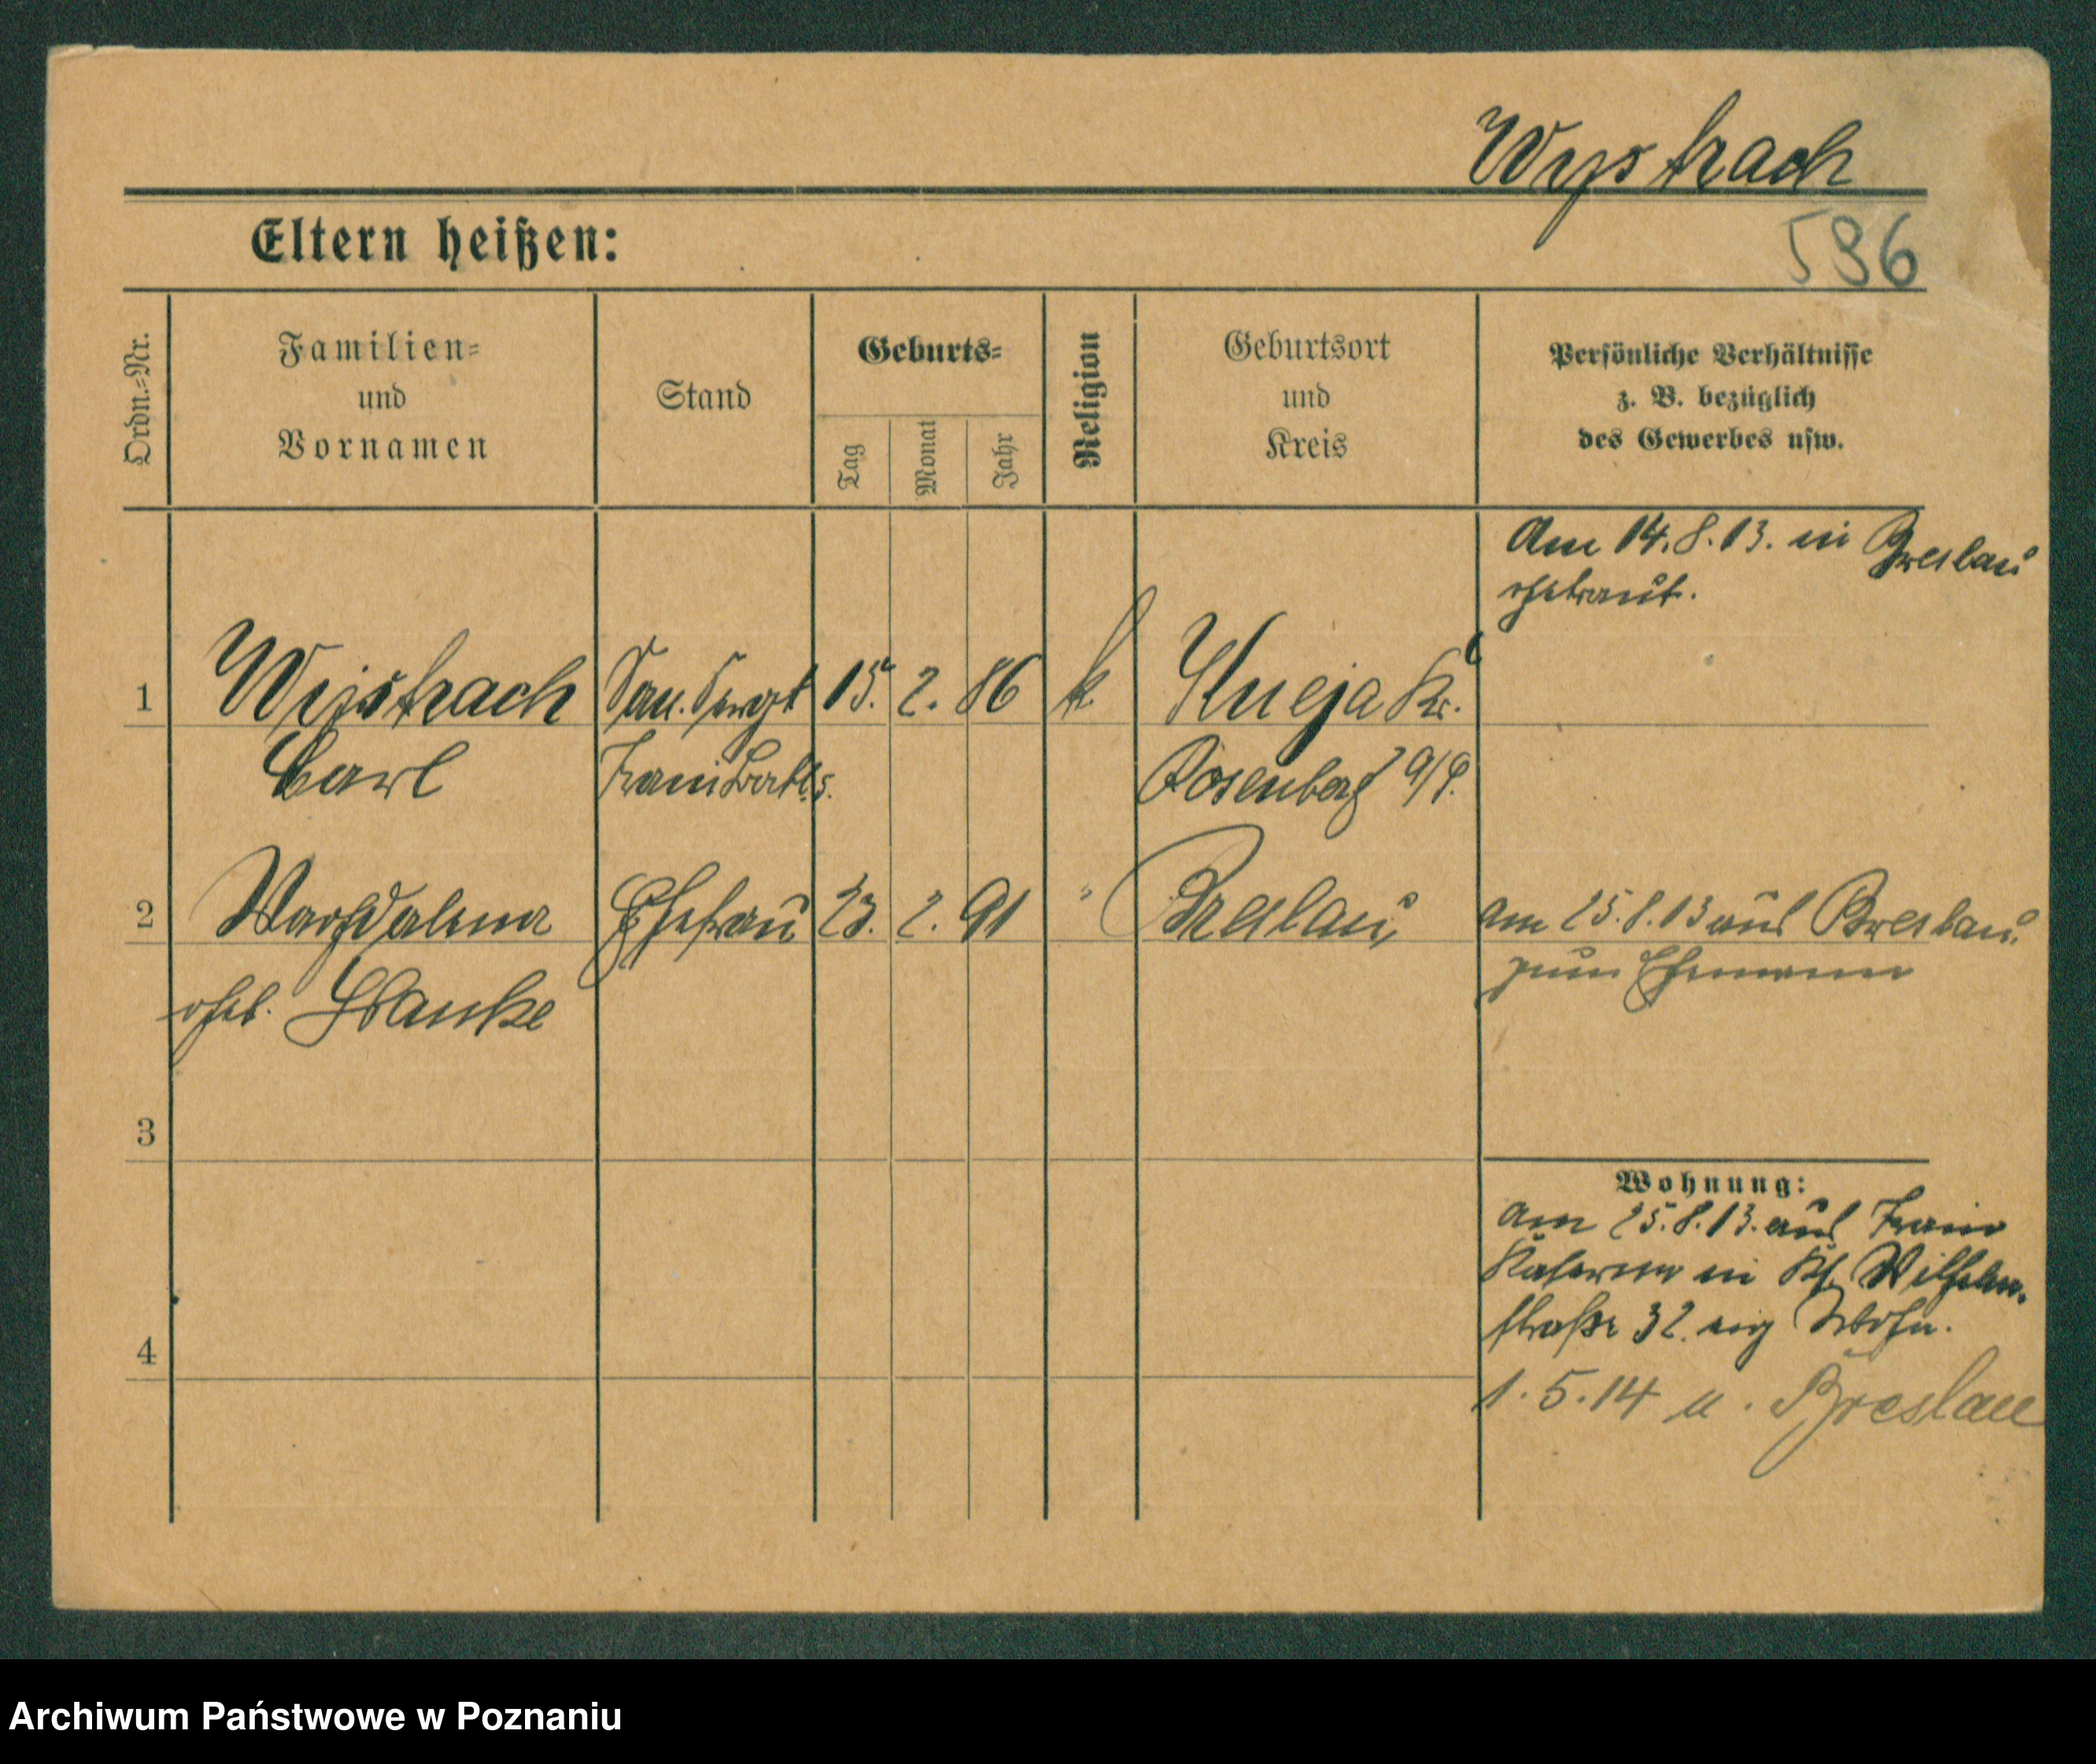 Wystrach
596
Eltern heißen:
Ordn.=Nr.
Familien=
und
Vornamen
Stand
Geburts=
Tag
Monat
Jahr
Religion
Geburtsort
und
Kreis
Persönliche Verhältnisse
z. B. bezüglich
des Gewerbes usw.
Am 14.8.13. in Breslau
getraut.
1
Wystrach
Carl
San. Sergt
15. 2. 86
k.
Kr.
Rosenberg O/S.
2
Magdalena
geb.
Ehefrau
23. 2. 91
"
Breslau
am 25.8.13 aus Breslau
zum Ehemann
3
4
Wohnung:
Am 25.8.13. aus Train
Kaserne in Wilhelm-
straße 32. eig Wohn.
1.5.14 n. Breslau
Archiwum Państwowe w Poznaniu